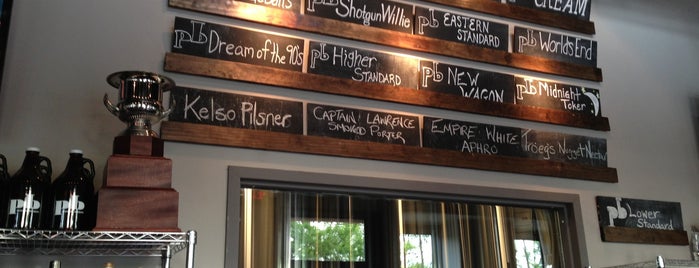 Shotgun Willie
pb EASTERN
STANDARD
CREAM
pb Dream of the 90's
pb Higher
STANDARD
pb NEW
WAGON
pb World's End
pb Midnight
Toker
Kelso Pilsner
CAPTAIN LAWRENCE
SMOKED PORTER
EMPIRE WHITE
APHRO
Tröegs Nugget Nectar
pb Lower
Standard
pb
pb